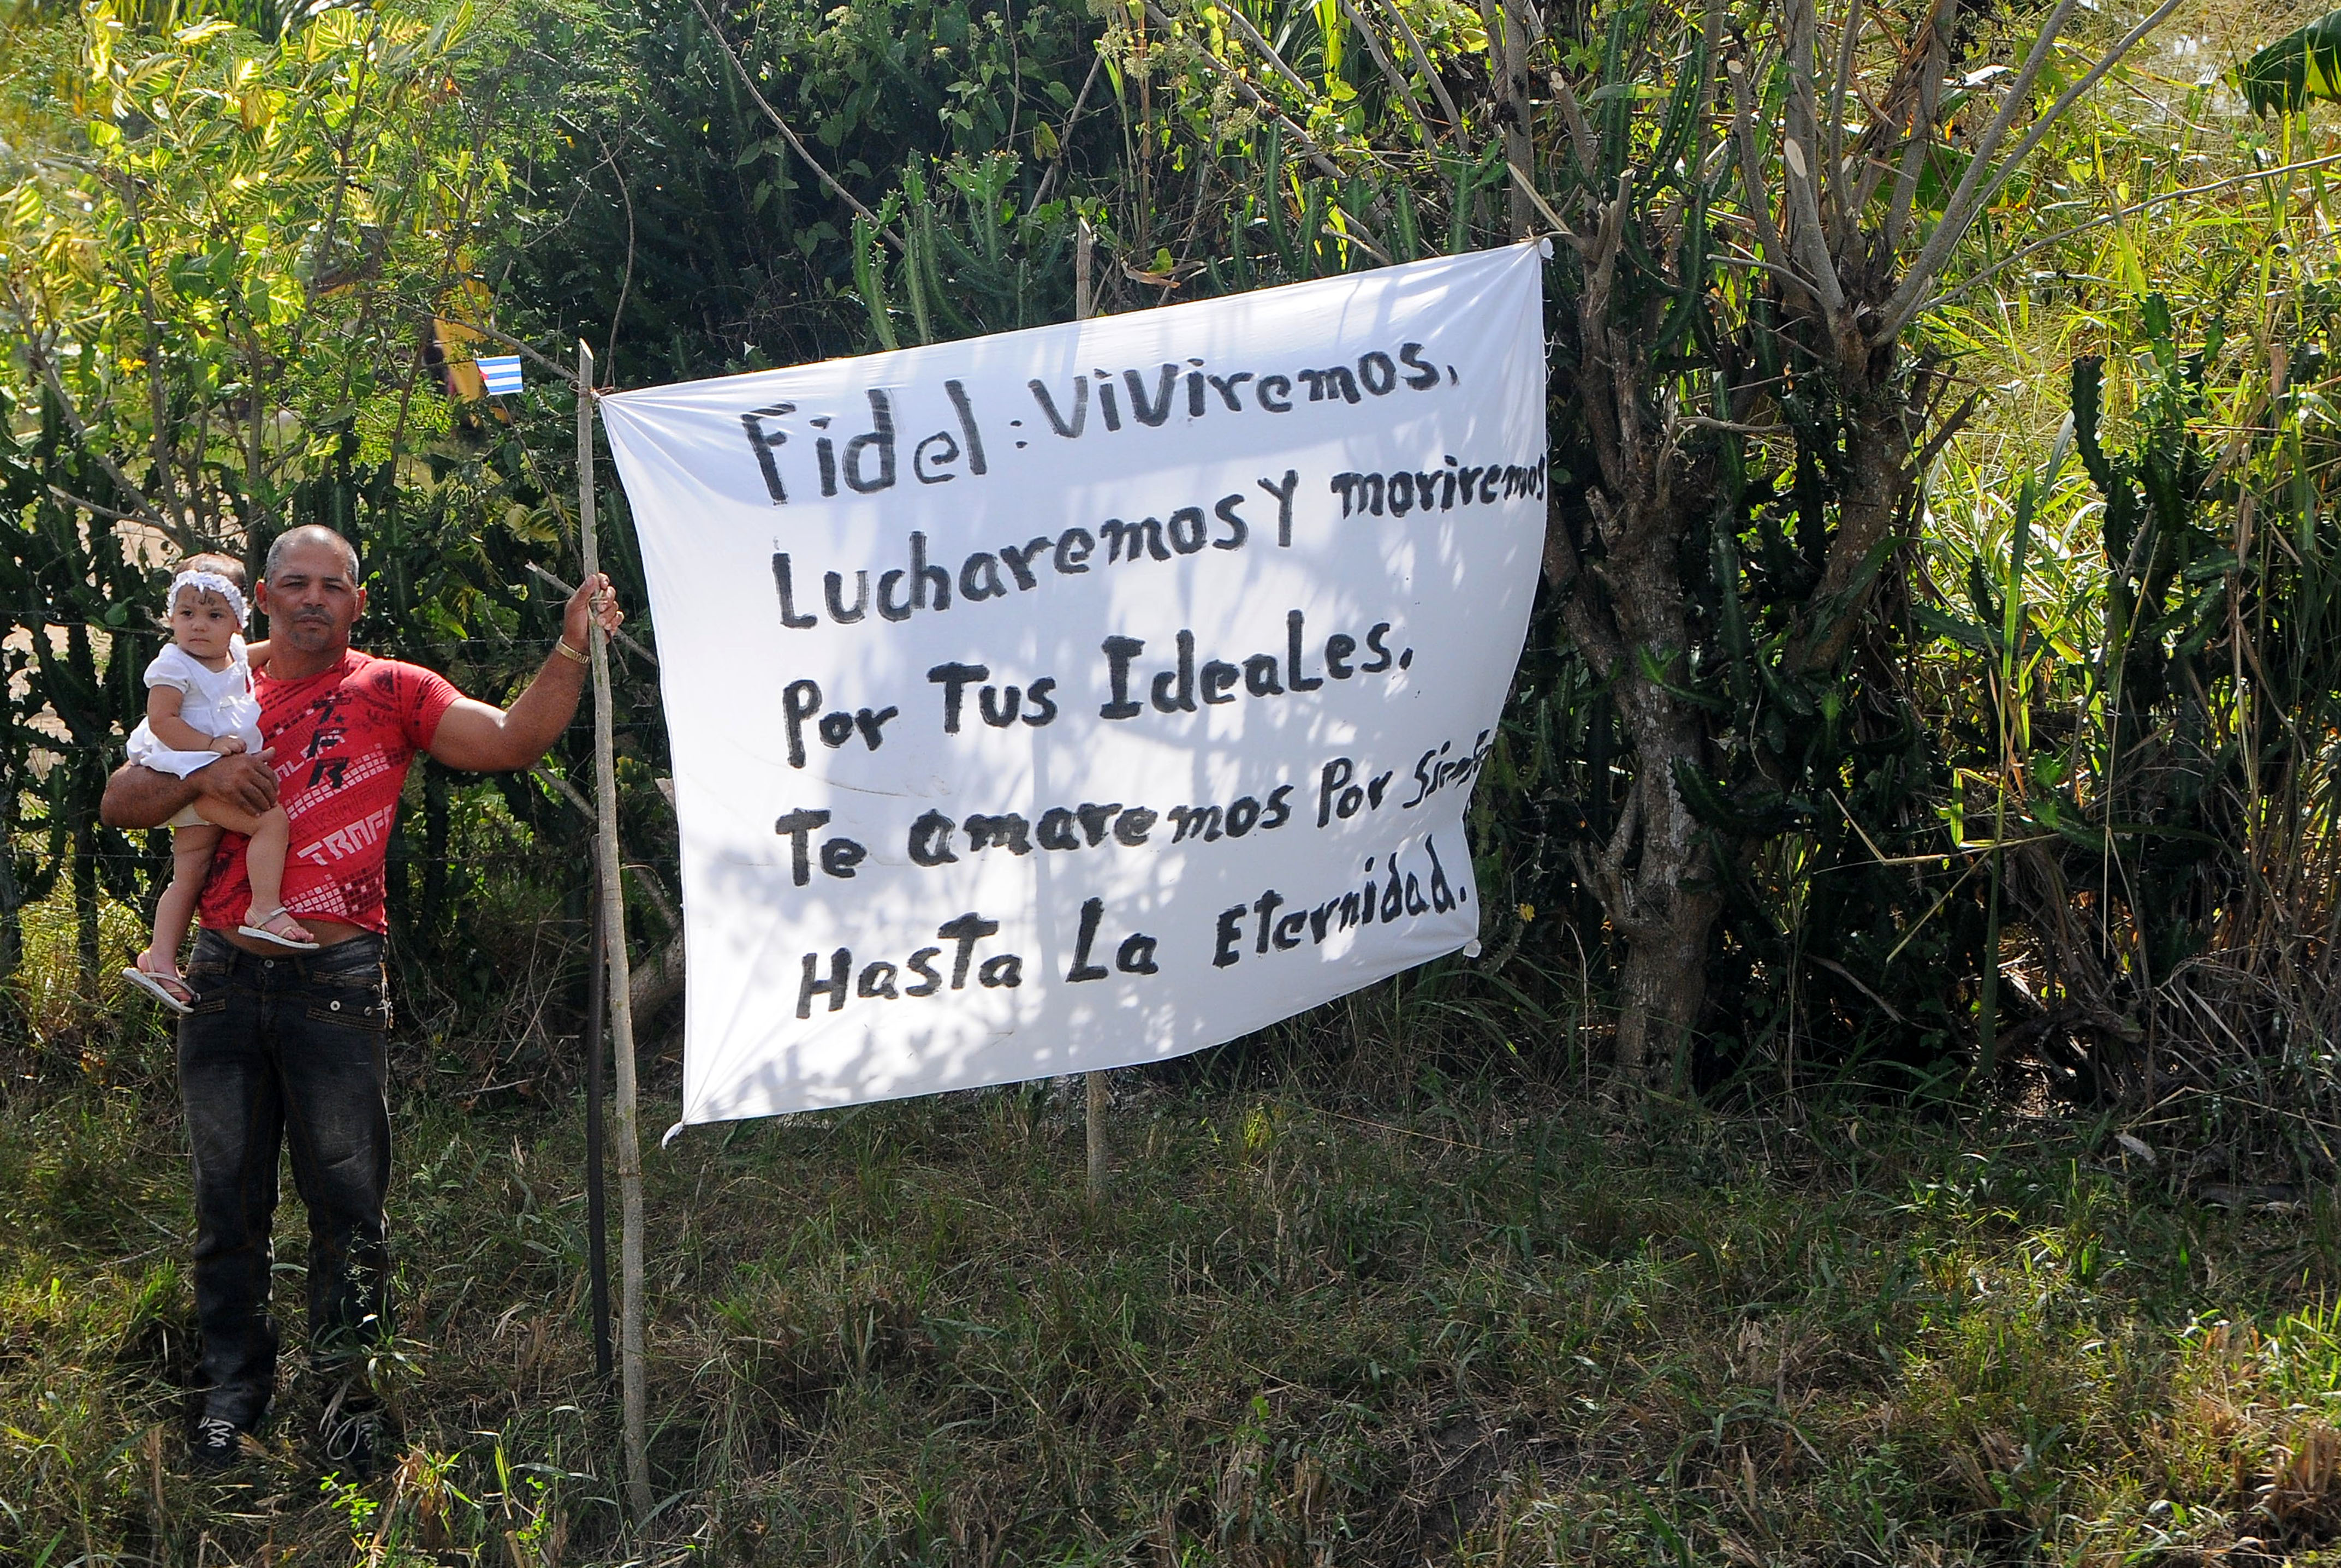 Fidel: ViViremos,
Lucharemos Y moriremos
Por Tus IdeaLes.
Te amaremos Por
HasTa La ETernidad.
TRAFF